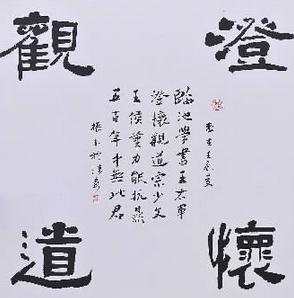 澄懷
觀道
臨池學書王右軍
澄懷觀道宗少文
王侯筆力能抗鼎
五百年來無此君